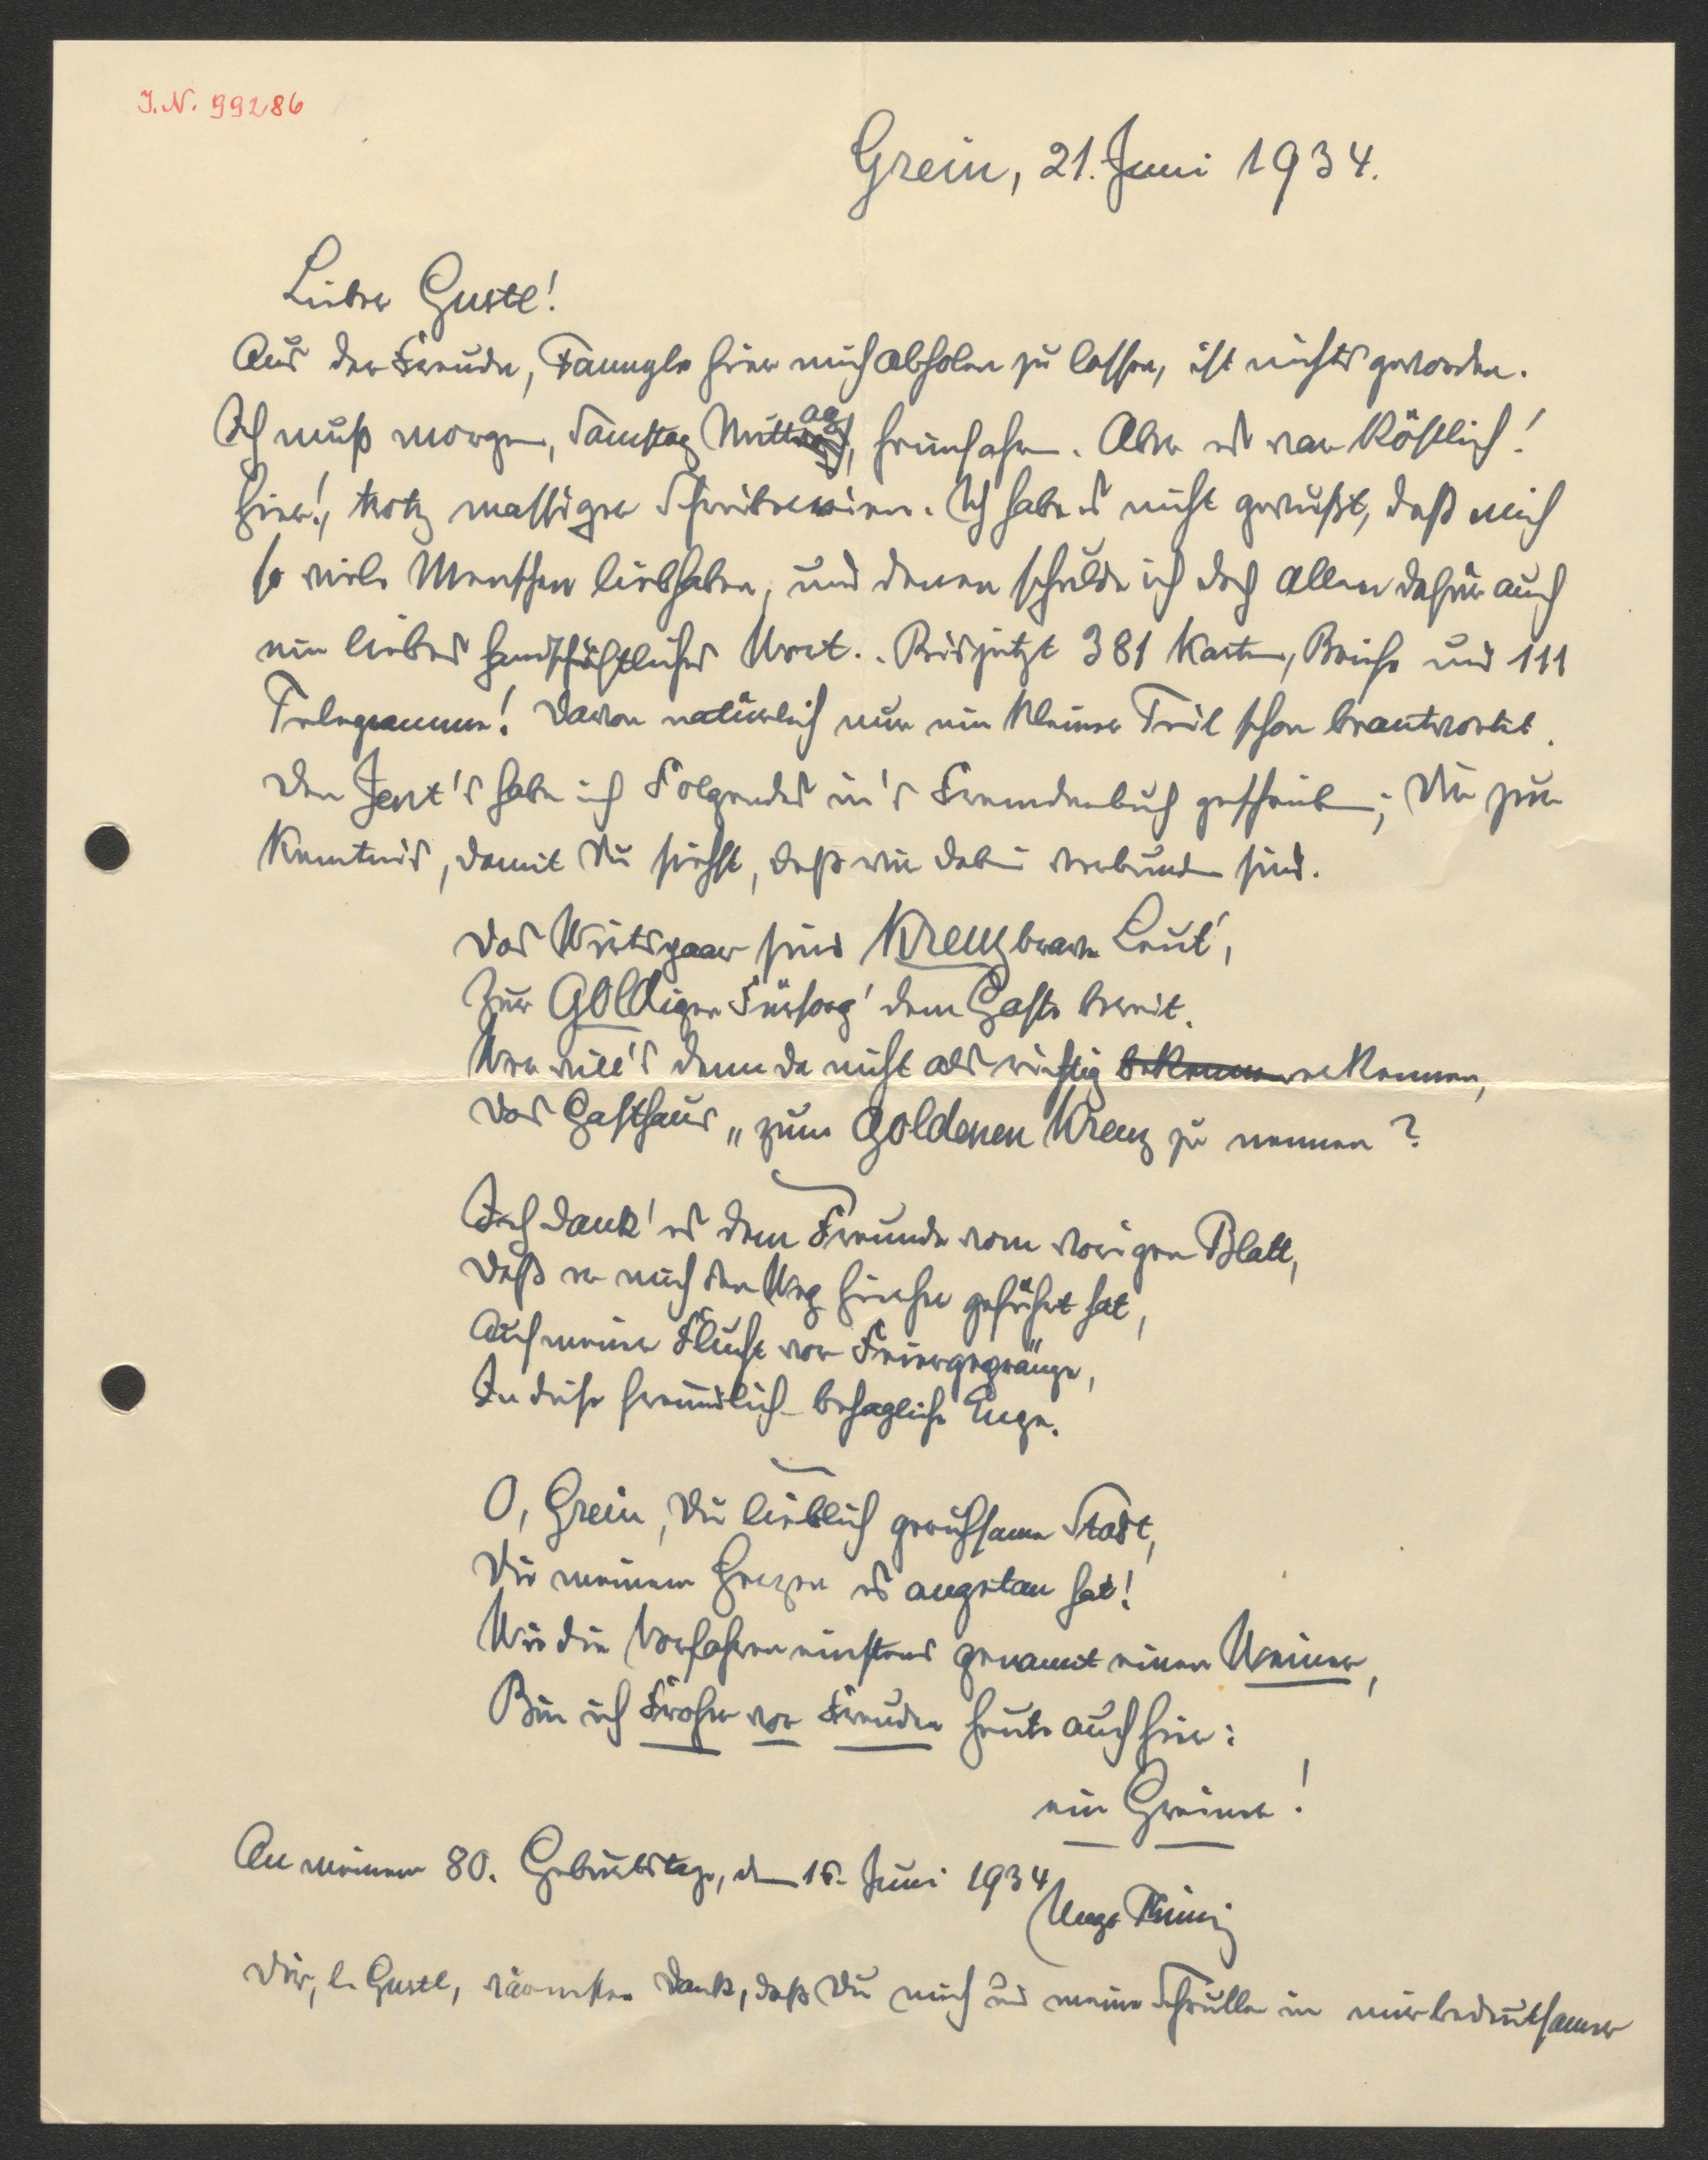 J.N. 99286
Grein, 21. Juni 1934.
Lieber Gustl!
Aus der Freude, hier mich abholen zu lassen, ist nichts geworden.
Ich muß morgen, Samstag Mittag, heimfahren. Aber es war köstlich!
hier!, trotz massiger Schreibereien. Ich habe es nicht gewußt, daß mich
so viele Menschen liebhaben, und denen schulde ich doch allen dafür auch
ein liebes handschriftliches Wort.. Bis jetzt 381 Karten, Briefe und 111
Telegramme! Davon natürlich nur ein kleiner Teil schon beantwortet.
Den habe ich Folgendes in's Fremdenbuch geschrieben; Dir zur
Kenntnis, damit Du siehst, daß wir dabei verbunden sind.
Das Wirtspaar sind Kreuzbrave Leut',
Zur GOLDigen Fürsorg' dem Gaste bereit.
Wer will's denn da nicht als richtig bekennen erkennen,
Das Gasthaus „zum Goldenen Kreuz zu nennen?
Ich dank' es dem Freunde vom vorigen Blatt,
Daß er mich den Weg hierher geführt hat,
Auf meiner Flucht vor Feiergepränge,
In diese freundlich-behagliche Enge.
O, Grein, Du lieblich geruhsame Stadt,
Die meinem Herzen es angetan hat!
Wie die Vorfahren einstens genannt einen Weiner,
Bin ich Froher vor Freuden heute auch hier:
ein Greiner!
An meinem 80. Geburtstage, den 16. Juni 1934
Hugo Thimig
Dir, l. Gustl, Dank, daß Du mich und meine Schrulle in mir bedeutsamer